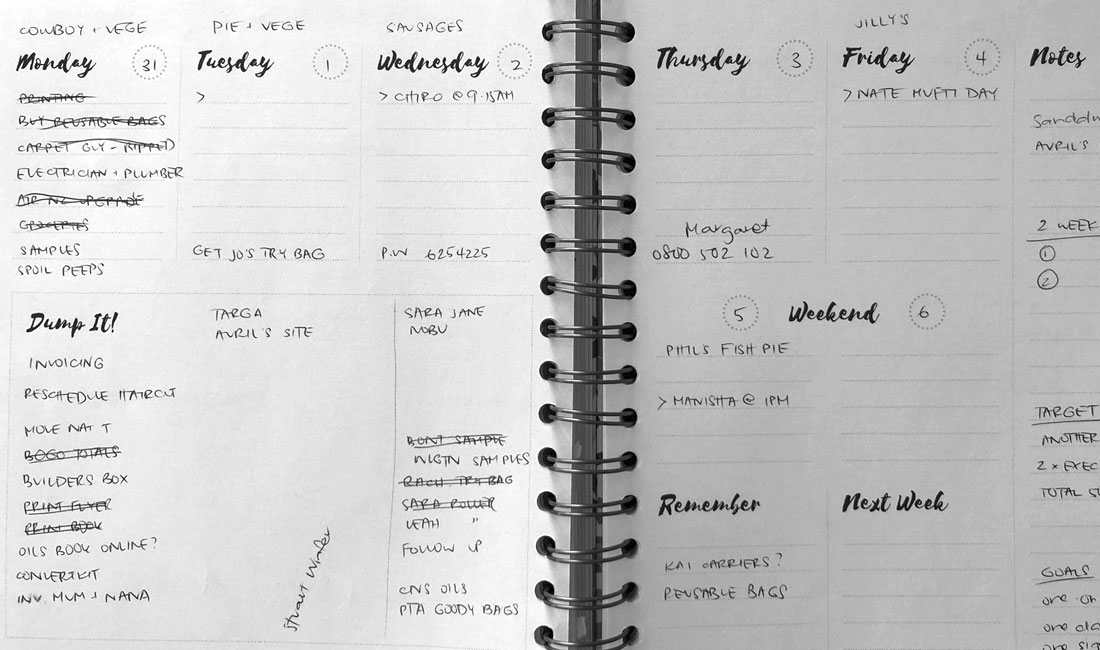 COWBOY + VEGE
PIE + VEGE
SAUSAGES
Monday 31
Tuesday 1
Wednesday 2
PRINTING
BUY REUSABLE BAGS
CARPET GUY - RIPPED
ELECTRICIAN + PLUMBER
AIR NZ UPGRADE
GROCERIES
SAMPLES
SPOIL PEEPS
>
GET JO'S TRY BAG
> CHIRO @ 9.15AM
P.W 6254225
Dump It!
INVOICING
RESCHEDULE HAIRCUT
MOVE NAT T
BOGO TOTALS
BUILDERS BOX
PRINT FLYER
PRINT BOOK
OILS BOOK ONLINE?
CONVERTKIT
INV. MUM + NANA
TARGA
AVRIL'S SITE
Stuart Winter
SARA JANE
NOBU
BONT SAMPLE
WLGTN SAMPLES
RACH TRY BAG
SARA ROLLER
LEAH "
FOLLOW UP
CNS OILS
PTA GOODY BAGS
JILLY'S
Thursday 3
Friday 4
Notes
Margaret
0800 502 102
> NATE MUFTI DAY
5 Weekend 6
PHIL'S FISH PIE
> MANISHA @ 1PM
Remember
KAI CARRIERS?
REUSABLE BAGS
Next Week
AVRIL'S
2 WEEK
1
2
TARGET
ANOTHER
2 x EXEC
TOTAL
GOALS
one
one
one